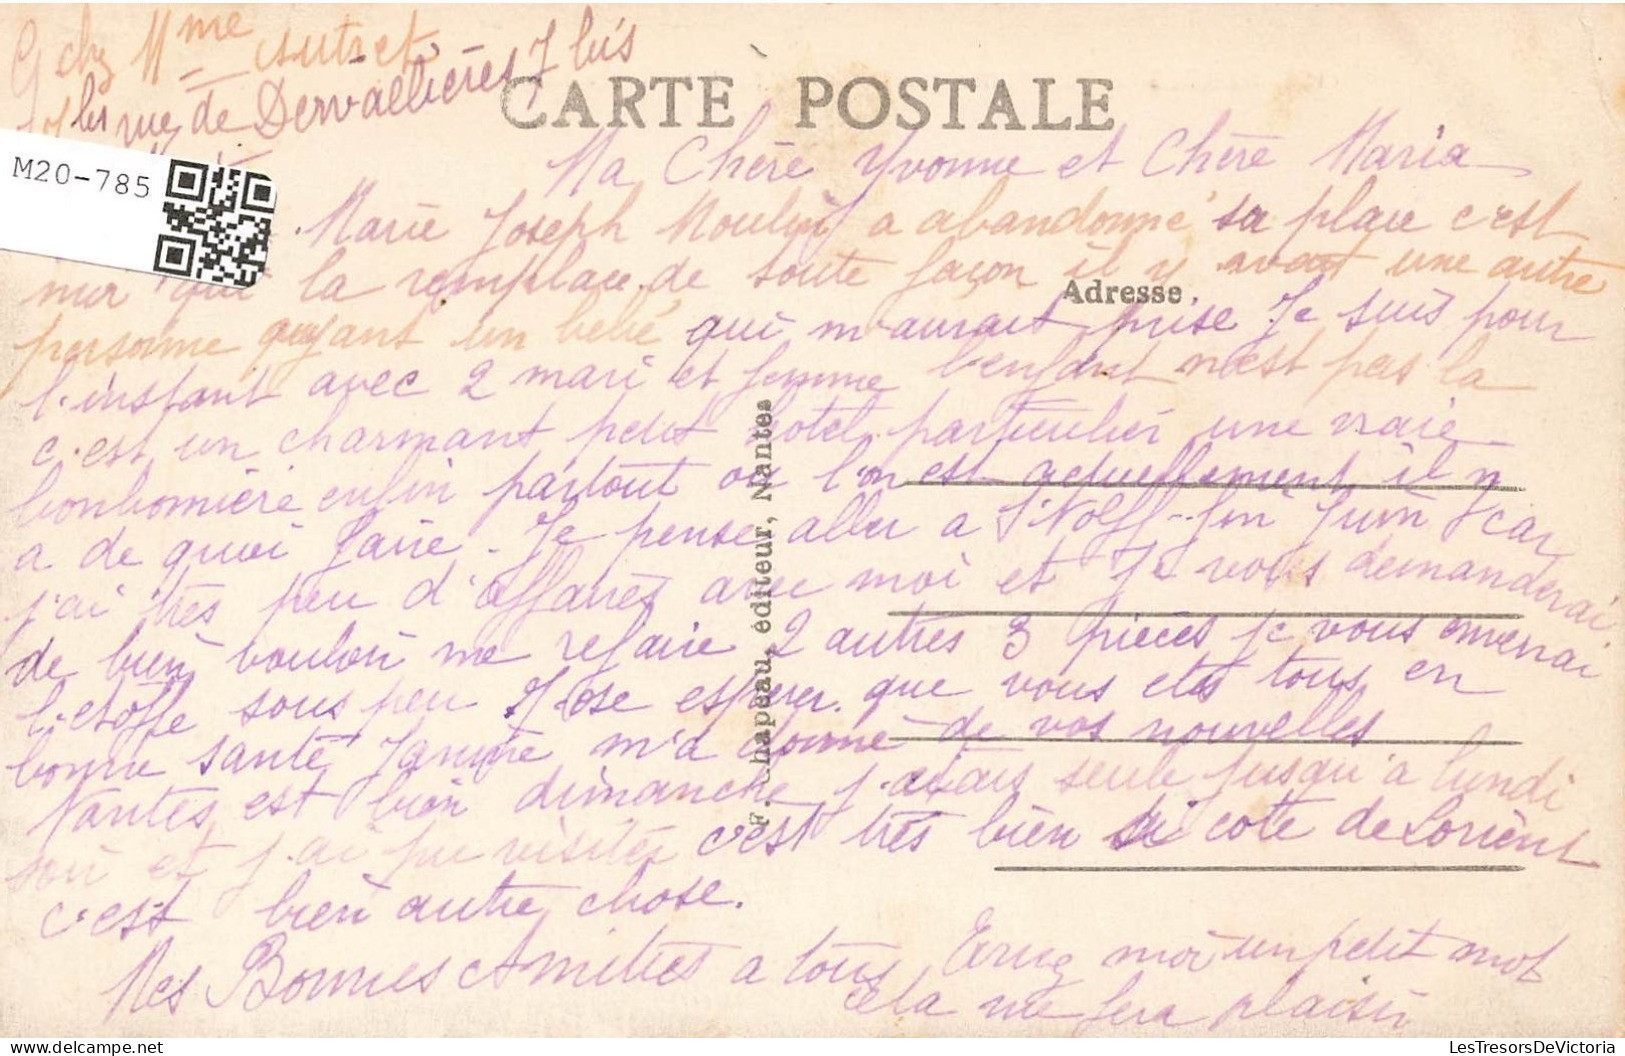 chez Mme Autret
7 bis rue de Dervallières 7 bis
CARTE POSTALE
M20-785
Ma Chère Yvonne et Chère Maria
Marie Joseph Moulin a abandonné sa place c'est
moi qui la remplace de toute façon il y avait une autre
Adresse
personne ayant un bébé qui m'aurait prise Je suis pour
l'instant avec 2 mari et femme l'enfant n'est pas la
c'est un charmant petit hotel particulier une vraie
bonbonière enfin partout ou l'on est actuellement il n
a de quoi faire. Je pense aller a St Nolff fin Juin car
j'ai très peu d'affaires avec moi et Je vous demanderai
de bien vouloir me refaire 2 autres 3 pièces je vous enverrai
l'etoffe sous peu J'ose esperer que vous etes tous en
bonne santé Janine m'a donné de vos nouvelles
Nantes est bien dimanche j'etais seule jusqu'a lundi
soir et j'ai pu visiter c'est très bien si coté de Lorient
c'est bien autre chose.
Mes Bonnes Amitiés a tous
Ecrivez moi un petit mot
cela me fera plaisir
F. Chapeau, éditeur, Nantes
LesTresorsDeVictoria
delcampe.net